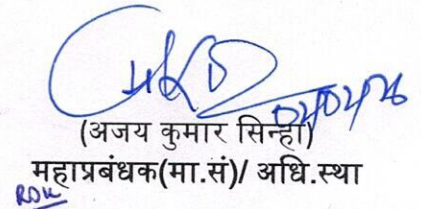 04/04/26
(अजय कुमार सिन्हा)
महाप्रबंधक(मा.सं)/ अधि.स्था